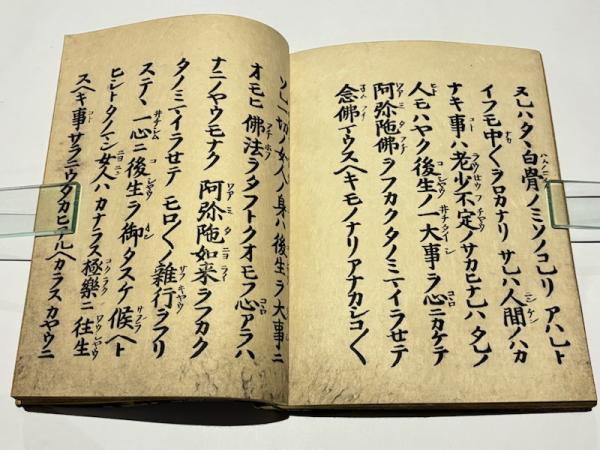 ヌレハタヽ白骨ノミソノコレリ アハレト
イフモ中〳〵ヲロカナリ サレハ人間ノハカ
ナキ事ハ老少不定ノサカヒナレハ タレノ
人モハヤク後生ノ一大事ヲ心ニカケテ
阿弥陁佛ヲフカクタノミマイラセテ
念佛マウスヘキモノナリアナカシコ〳〵
ソレ一切ノ女人ノ身ハ後生ヲ大事ニ
オモヒ 佛法ヲタフトクオモフ心アラハ
ナニノヤウモナク 阿弥陁如来ヲフカク
タノミマイラセテ モロ〳〵ノ雜行ヲフリ
ステヽ 一心ニ後生ヲ御タスケ候ヘト
ヒシトタノマン女人ハ カナラス極樂ニ往生
スヘキ事サラニウタカヒアルヘカラスカヤウニ